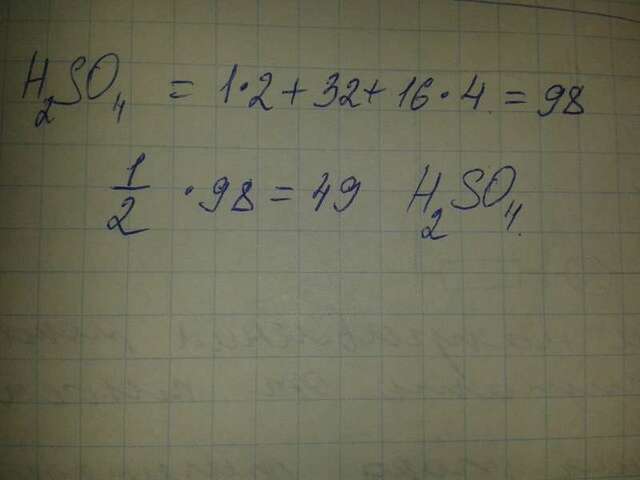 H₂SO₄ = 1·2+32+16·4 = 98
1/2 · 98 = 49 H₂SO₄